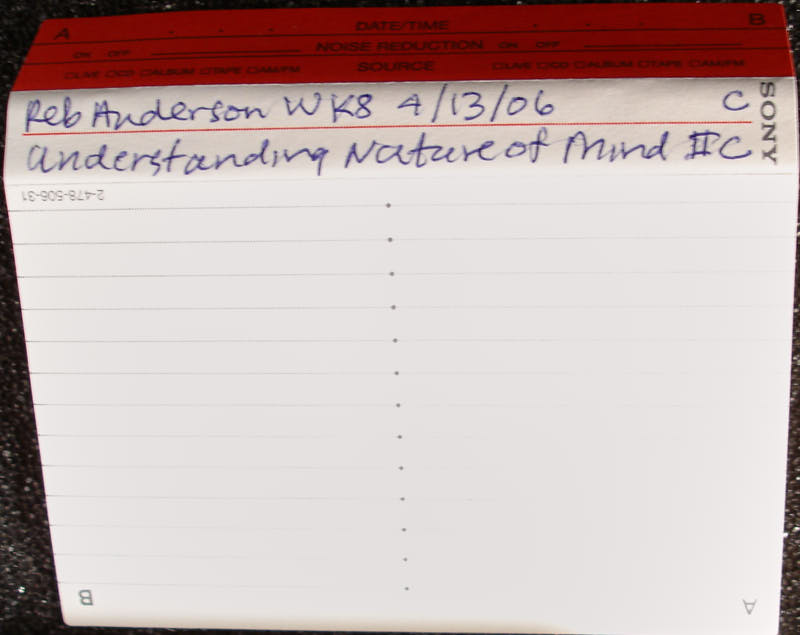 A DATE/TIME B
ON OFF NOISE REDUCTION ON OFF
LIVE CD ALBUM TAPE AM/FM SOURCE LIVE CD ALBUM TAPE AM/FM
Reb Anderson WK8 4/13/06 C
Understanding Nature of Mind II C
SONY
2-478-506-31
B A